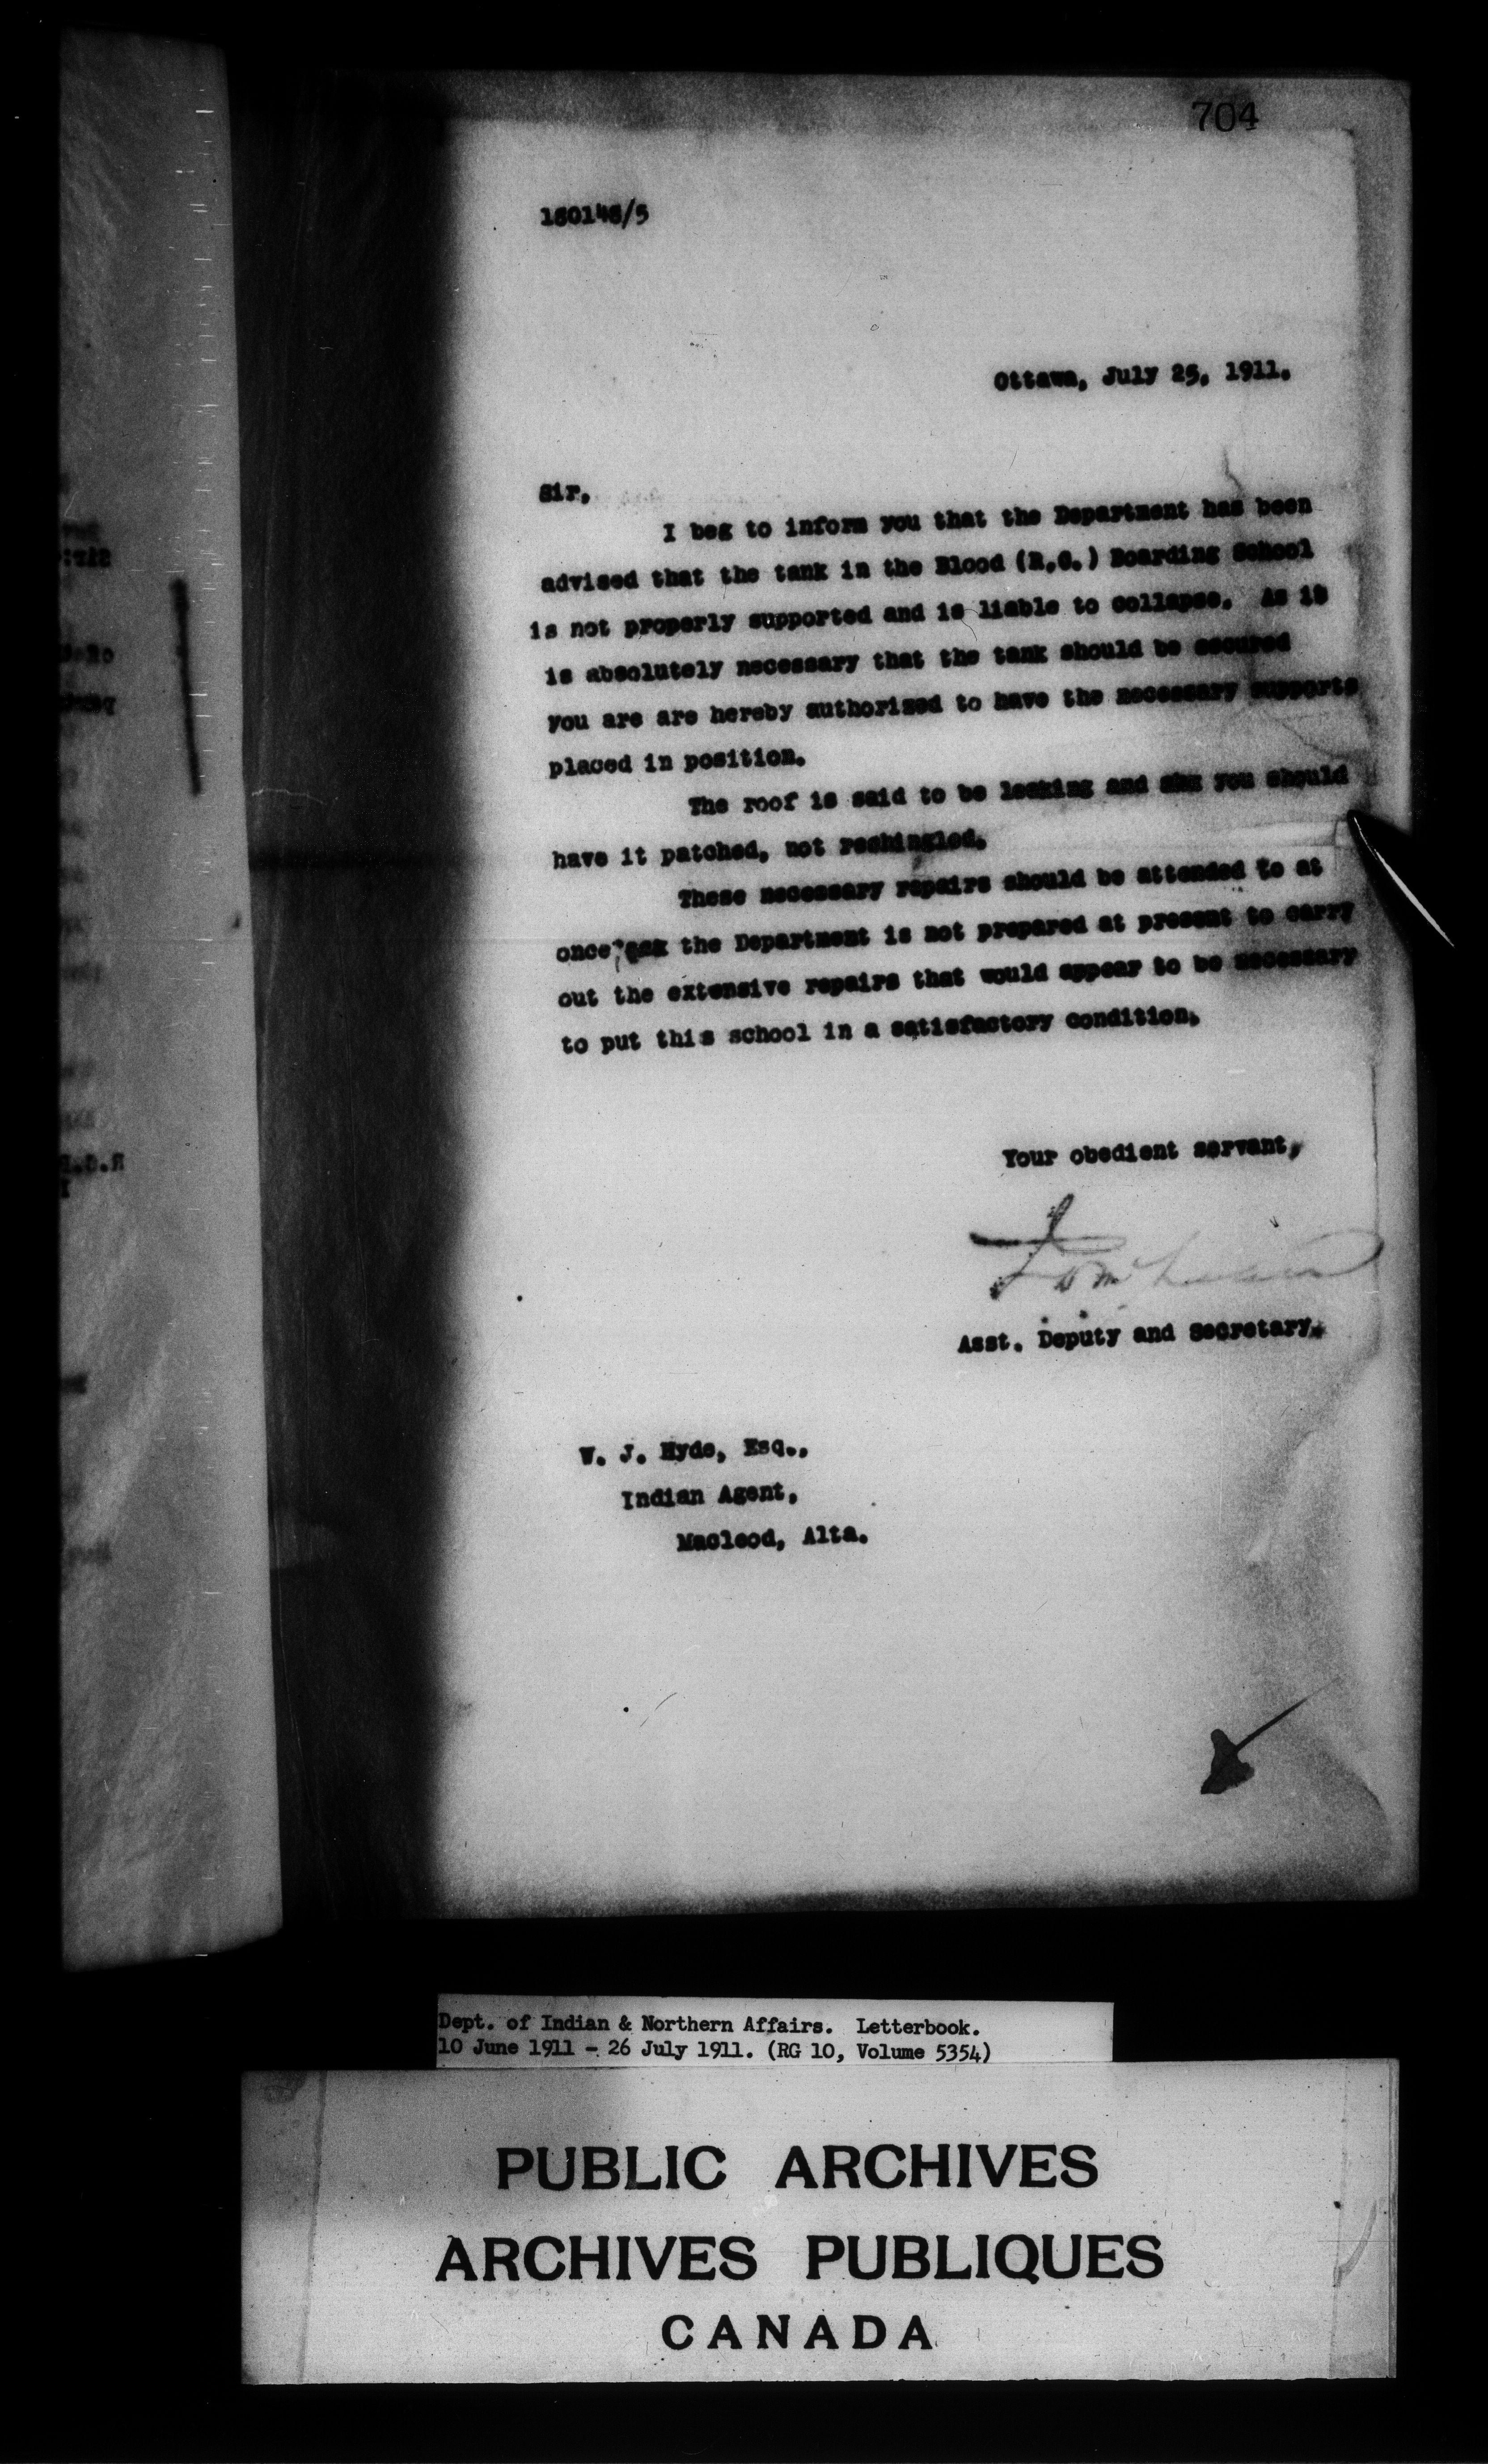 704
160146/5
Ottawa, July 25, 1911.
Sir,
I beg to inform you that the Department has been
advised that the tank in the Blood (R.C.) Boarding School
is not properly supported and is liable to collapse. As it
is absolutely necessary that the tank should be secured
you are are hereby authorized to have the necessary supports
placed in position.
The roof is said to be leaking and you should
have it patched, not reshingled.
These necessary repairs should be attended to at
once the Department is not prepared at present to carry
out the extensive repairs that would appear to be necessary
to put this school in a satisfactory condition.
Your obedient servant,
Asst. Deputy and Secretary.
W. J. Hyde, Esq.,
Indian Agent,
Macleod, Alta.
Dept. of Indian & Northern Affairs. Letterbook.
10 June 1911 - 26 July 1911. (RG 10, Volume 5354)
PUBLIC ARCHIVES
ARCHIVES PUBLIQUES
CANADA